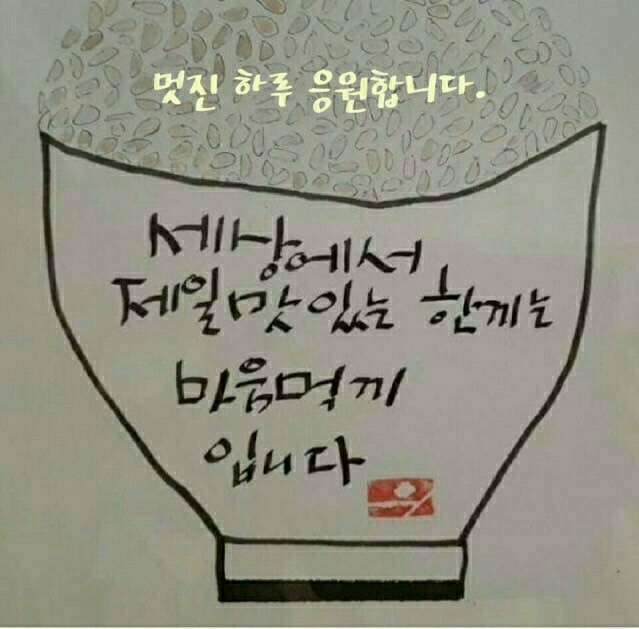 멋진 하루 응원합니다.
세상에서
제일맛있는 한끼는
마음먹끼
입니다